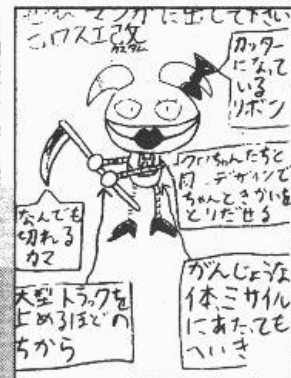 マンガに出して下さい
コロスエ改
カスタム
カッター
になって
いる
リボン
ちゃんたちと
同デザインで
ちゃんときかいを
とりだせる
なんでも
切れる
カマ
大型トラックを
止めるほどの
ちから
がんじょうな
体、ミサイル
にあたっても
へいき